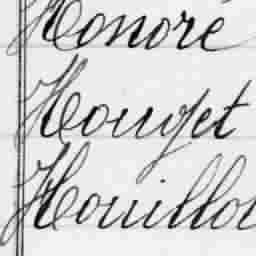 Honoré
Houget
Houillo